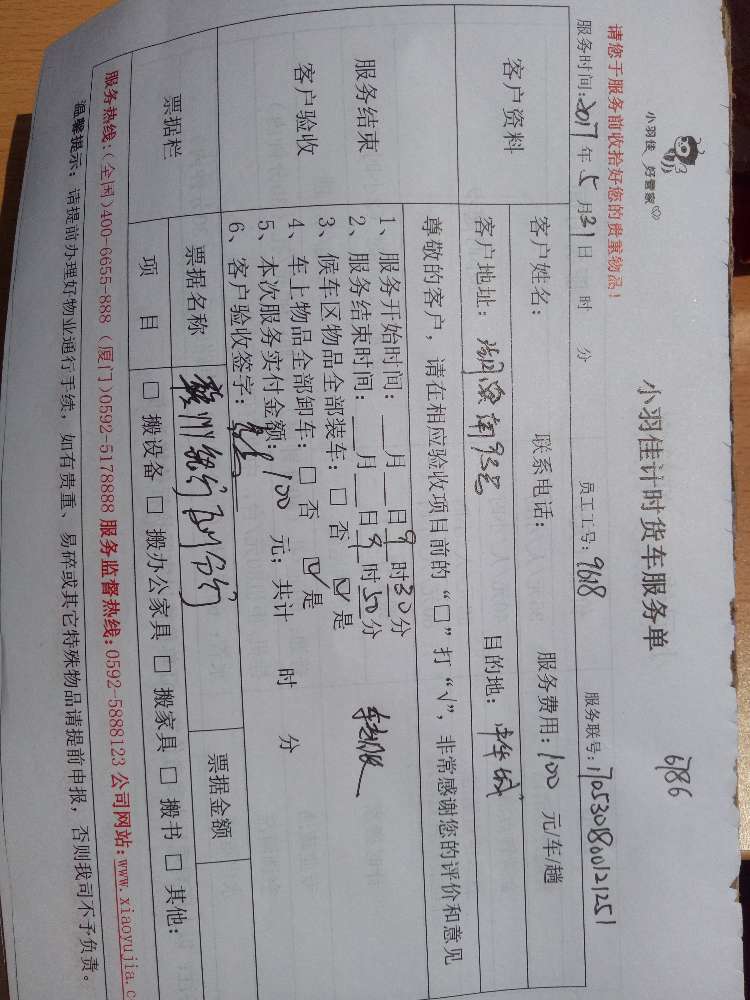 小羽佳 好管家
小羽佳计时货车服务单
6786
请您于服务前收拾好您的贵重物品！
服务时间：2017 年 5 月 31 日 时 分 员工工号：9618 服务联号：170530180012251
客户资料
客户姓名： 联系电话： 服务费用：100 元/车/趟
客户地址： 目的地：中华城
尊敬的客户，请在相应验收项目前的“□”打“√”，非常感谢您的评价和意见
服务结束
客户验收
1、服务开始时间：___月___日 9 时 30 分
2、服务结束时间：___月___日 9 时 50 分
3、候车区物品全部装车：□ 否 ☑ 是
4、车上物品全部卸车：□ 否 ☑ 是
5、本次服务实付金额：100 元；共计 时 分
6、客户验收签字：
票据栏
票据名称 票据金额
项 目 □ 搬设备 □ 搬办公家具 □ 搬家具 □ 搬书 □ 其他：
服务热线：（全国）400-6655-888 （厦门）0592-5178888 服务监督热线：0592-5888123 公司网站：www.xiaoyujia.c
温馨提示：请提前办理好物业通行手续，如有贵重、易碎或其它特殊物品请提前申报，否则我司不予负责。